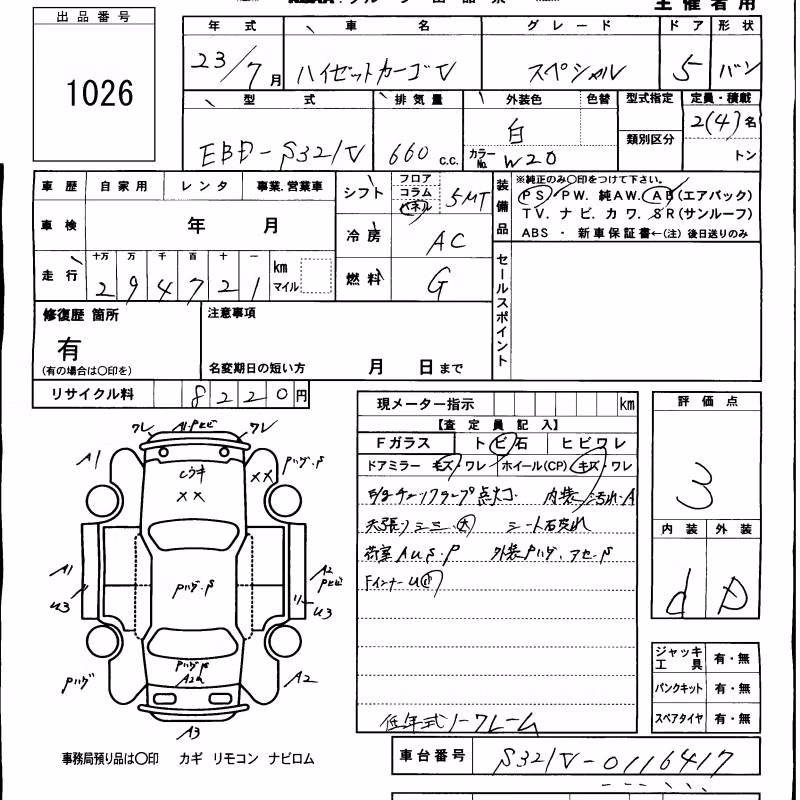 主催者用
出品番号
1026
年式 車名 グレード ドア 形状
23/7月 ハイゼットカーゴV スペシャル 5 バン
型式 排気量 外装色 色替 型式指定 定員・積載
EBD-S321V 660 c.c. 白 類別区分 2(4)名
カラーNo. W20 トン
車歴 自家用 レンタ 事業.営業車
シフト フロア コラム パネル 5MT
装備品 ※純正のみ〇印をつけて下さい。
PS PW. 純AW. AB(エアバック)
TV. ナビ. カワ. SR(サンルーフ)
ABS ・ 新車保証書←(注) 後日送りのみ
車検 年 月
冷房 AC
走行 十万 万 千 百 十 一 km マイル
294721
燃料 G
セールスポイント
修復歴 箇所
有
(有の場合は〇印を)
注意事項
名変期日の短い方 月 日まで
リサイクル料 8220円
現メーター指示 km
【査定員記入】
Fガラス トビ石 ヒビワレ
ドアミラー キズ・ワレ ホイール(CP) キズ・ワレ
内装ヨゴレ・A
天張りシミ 大 シート
荷室AUS.P 外装Pハゲ.
Fインナー
低年式ノークレーム
評価点
3
内装 外装
d D
ジャッキ工具 有・無
パンクキット 有・無
スペアタイヤ 有・無
ワレ ワレ
A1 Pハゲ.S
XX
XX
A1 U3
Pハゲ.S
A2 Pヒビ
U3
Pハゲ
Pハゲ
A2
A3
事務局預り品は〇印 カギ リモコン ナビロム
車台番号 S321V-0116417